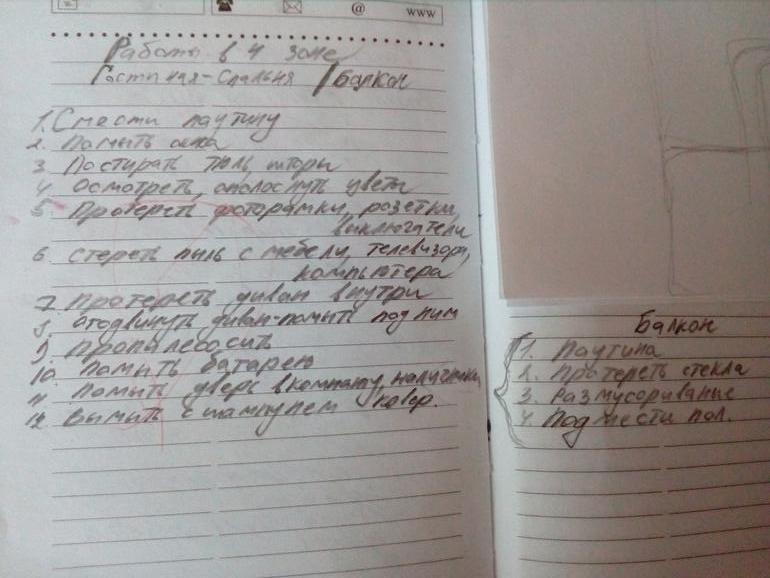 @ www
Работы в 4 зоне
Гостиная-Спальня / Балкон
1. Смести паутину
2. Помыть окна
3. Постирать тюль, шторы
4. Осмотреть, ополоснуть цветы
5. Протереть фоторамки, розетки,
выключатели
6. Стереть пыль с мебели, телевизора,
компьютера
7. Протереть диван внутри
8. Отодвинуть диван-помыть под ним
9. Пропылесосить
10. Помыть батарею
11. Помыть дверь в комнату, наличники
12. Вымыть с шампунем ковер.
Балкон
1. Паутина
2. Протереть стекла
3. Размусоривание
4. Подмести пол.